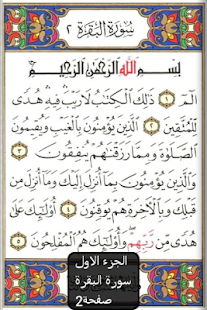 سُورَةُ البَقَرَةِ ٢
بِسْمِ اللَّهِ الرَّحْمَٰنِ الرَّحِيمِ
الٓمٓ ۝١ ذَٰلِكَ الْكِتَٰبُ لَا رَيْبَ ۛ فِيهِ ۛ هُدًى
لِّلْمُتَّقِينَ ۝٢ الَّذِينَ يُؤْمِنُونَ بِالْغَيْبِ وَيُقِيمُونَ
الصَّلَوٰةَ وَمِمَّا رَزَقْنَٰهُمْ يُنفِقُونَ ۝٣
وَالَّذِينَ يُؤْمِنُونَ بِمَا أُنزِلَ إِلَيْكَ وَمَا أُنزِلَ مِن
قَبْلِكَ وَبِالْآخِرَةِ هُمْ يُوقِنُونَ ۝٤ أُولَٰئِكَ عَلَىٰ
هُدًى مِّن رَّبِّهِمْ ۖ وَأُولَٰئِكَ هُمُ الْمُفْلِحُونَ ۝٥
الجزء الاول
سورة البقرة
صفحة2